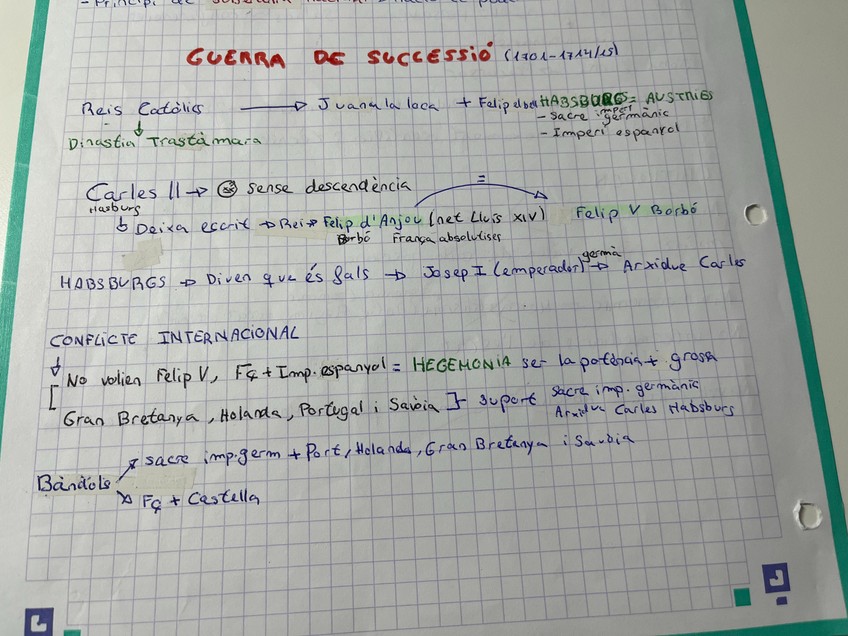 GUERRA DE SUCCESSIÓ (1701-1714/15)
Reis Catòlics → Juana la loca + Felip el bell HABSBURG = AUSTRIES
- sacre imperi germànic
- Imperi espanyol
Dinastia Trastàmara
Carles II → sense descendència
Hasburg
Deixa escrit → Rei → Felip d'Anjou (net Lluís XIV) = Felip V Borbó
Borbó França absolutises
HABSBURGS → Diuen que és fals → Josep I (emperador) germà → Arxiduc Carles
CONFLICTE INTERNACIONAL
No volien Felip V, Fç + Imp. espanyol = HEGEMONIA ser la potència + grossa
Gran Bretanya, Holanda, Portugal i Savòia → suport sacre imp. germànic
Arxiduc Carles Habsburg
Bàndols
sacre imp. germ + Port, Holanda, Gran Bretanya i Savoia
Fç + Castella